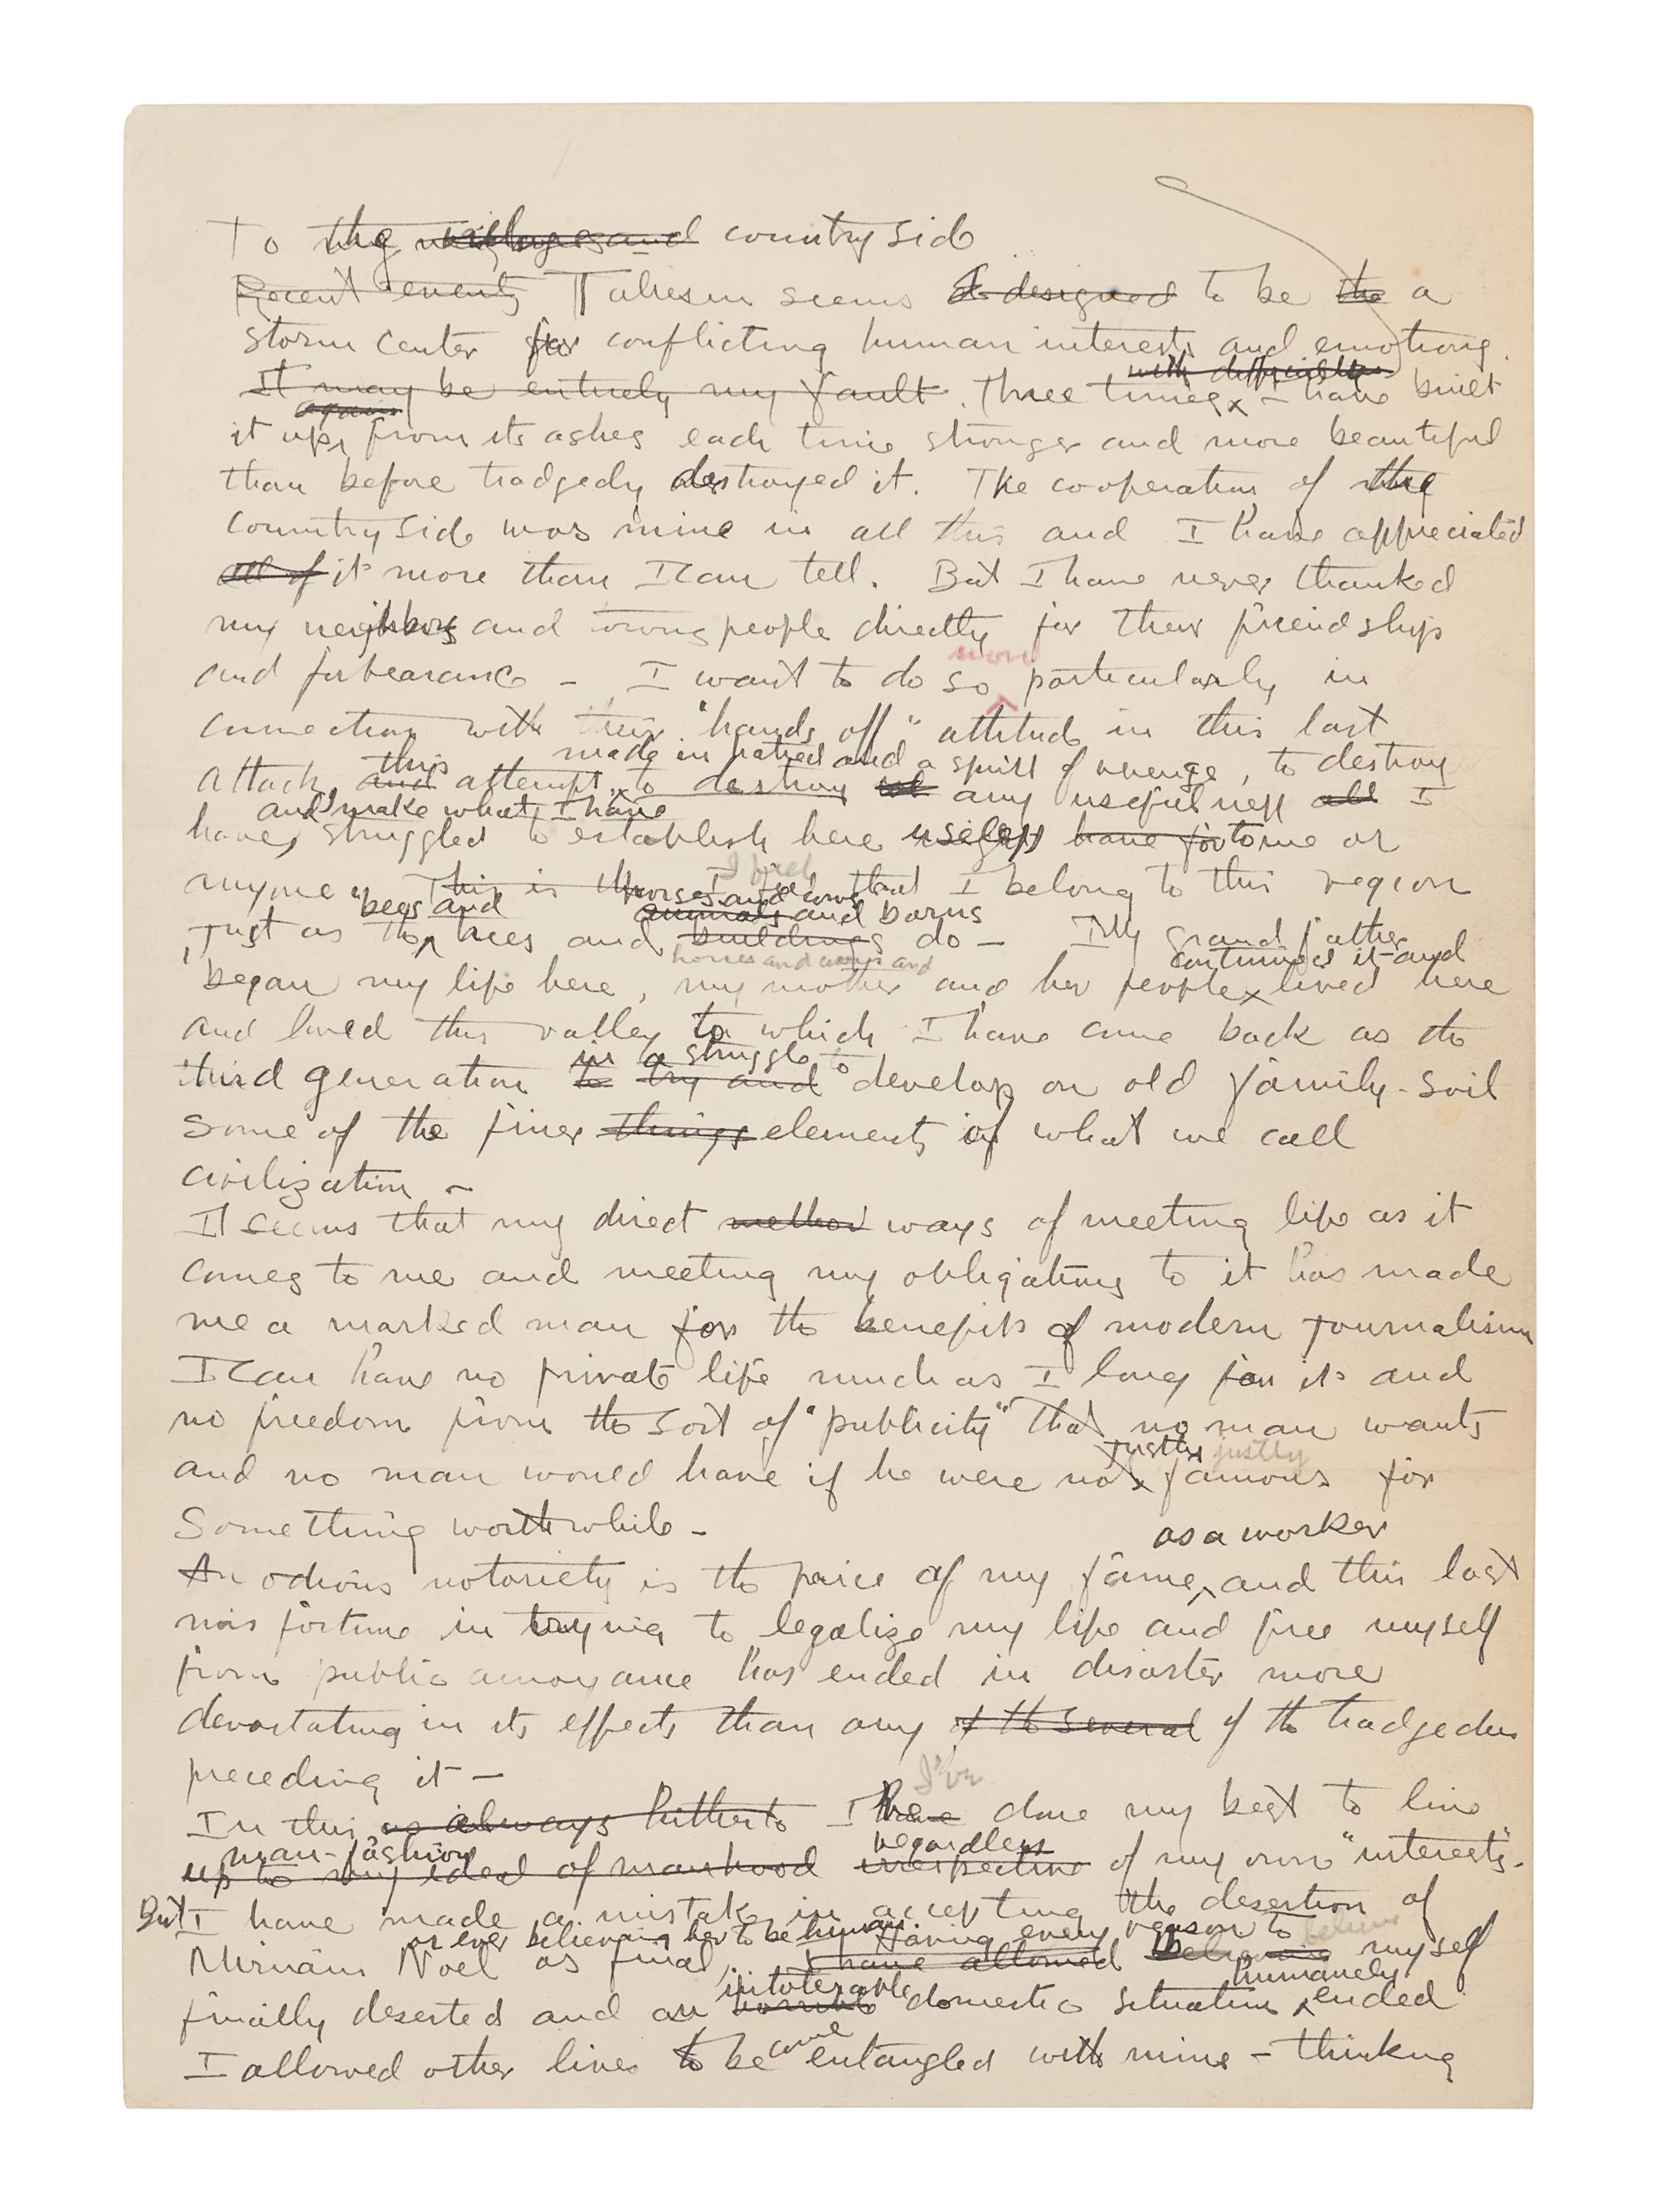 To the villages and countryside
Recent events Taliesin seems designed to be the a
storm center for conflicting human interests and emotions.
with difficulty
It may be entirely my fault. Three times I have built
again
it up from its ashes each time stronger and more beautiful
than before tradgedy destroyed it. The cooperation of the
countryside was mine in all this and I have appreciated
all of it more than I can tell. But I have never thanked
my neighbors and towns people directly for their friendship
more
and forbearance – I want to do so particularly in
connection with their "hands off" attitude in this last
this made in hatred and a spirit of revenge, to destroy
attack and attempt to destroy all any usefulness all I
and make what I have
have struggled to establish here useless have for to me or
I feel
anyone. This is I feel that I belong to this region
"bees and horses and cows
animals and barns
just as the trees and buildings do – My grandfather
horses and cows and continued it and
began my life here, my mother and her people lived here
and loved this valley to which I have come back as the
in a struggle to
third generation to try and develop on old family-soil
some of the finer things elements of what we call
civilization –
It seems that my direct method ways of meeting life as it
comes to me and meeting my obligations to it has made
me a marked man for the benefits of modern journalism
I can have no private life much as I long for it and
no freedom from the sort of "publicity" that no man wants
justly justly
and no man would have if he were not famous for
something worthwhile –
as a worker
An odious notoriety is the price of my fame, and this last
misfortune in trying to legalize my life and free myself
from public annoyance has ended in disaster more
devastating in its effects than any of the several of the tradgedies
preceding it –
I've
In this as always hitherto I have done my best to live
man-fashion regardless
up to my ideal of manhood irrespective of my own "interests".
But I have made a mistake in accepting the desertion of
or ever believing her to be human. Having every reason to believe
Miriam Noel as final, I have allowed believing myself
intolerable humanely
finally deserted and an horrible domestic situation ended
come
I allowed other lives to be entangled with mine – thinking